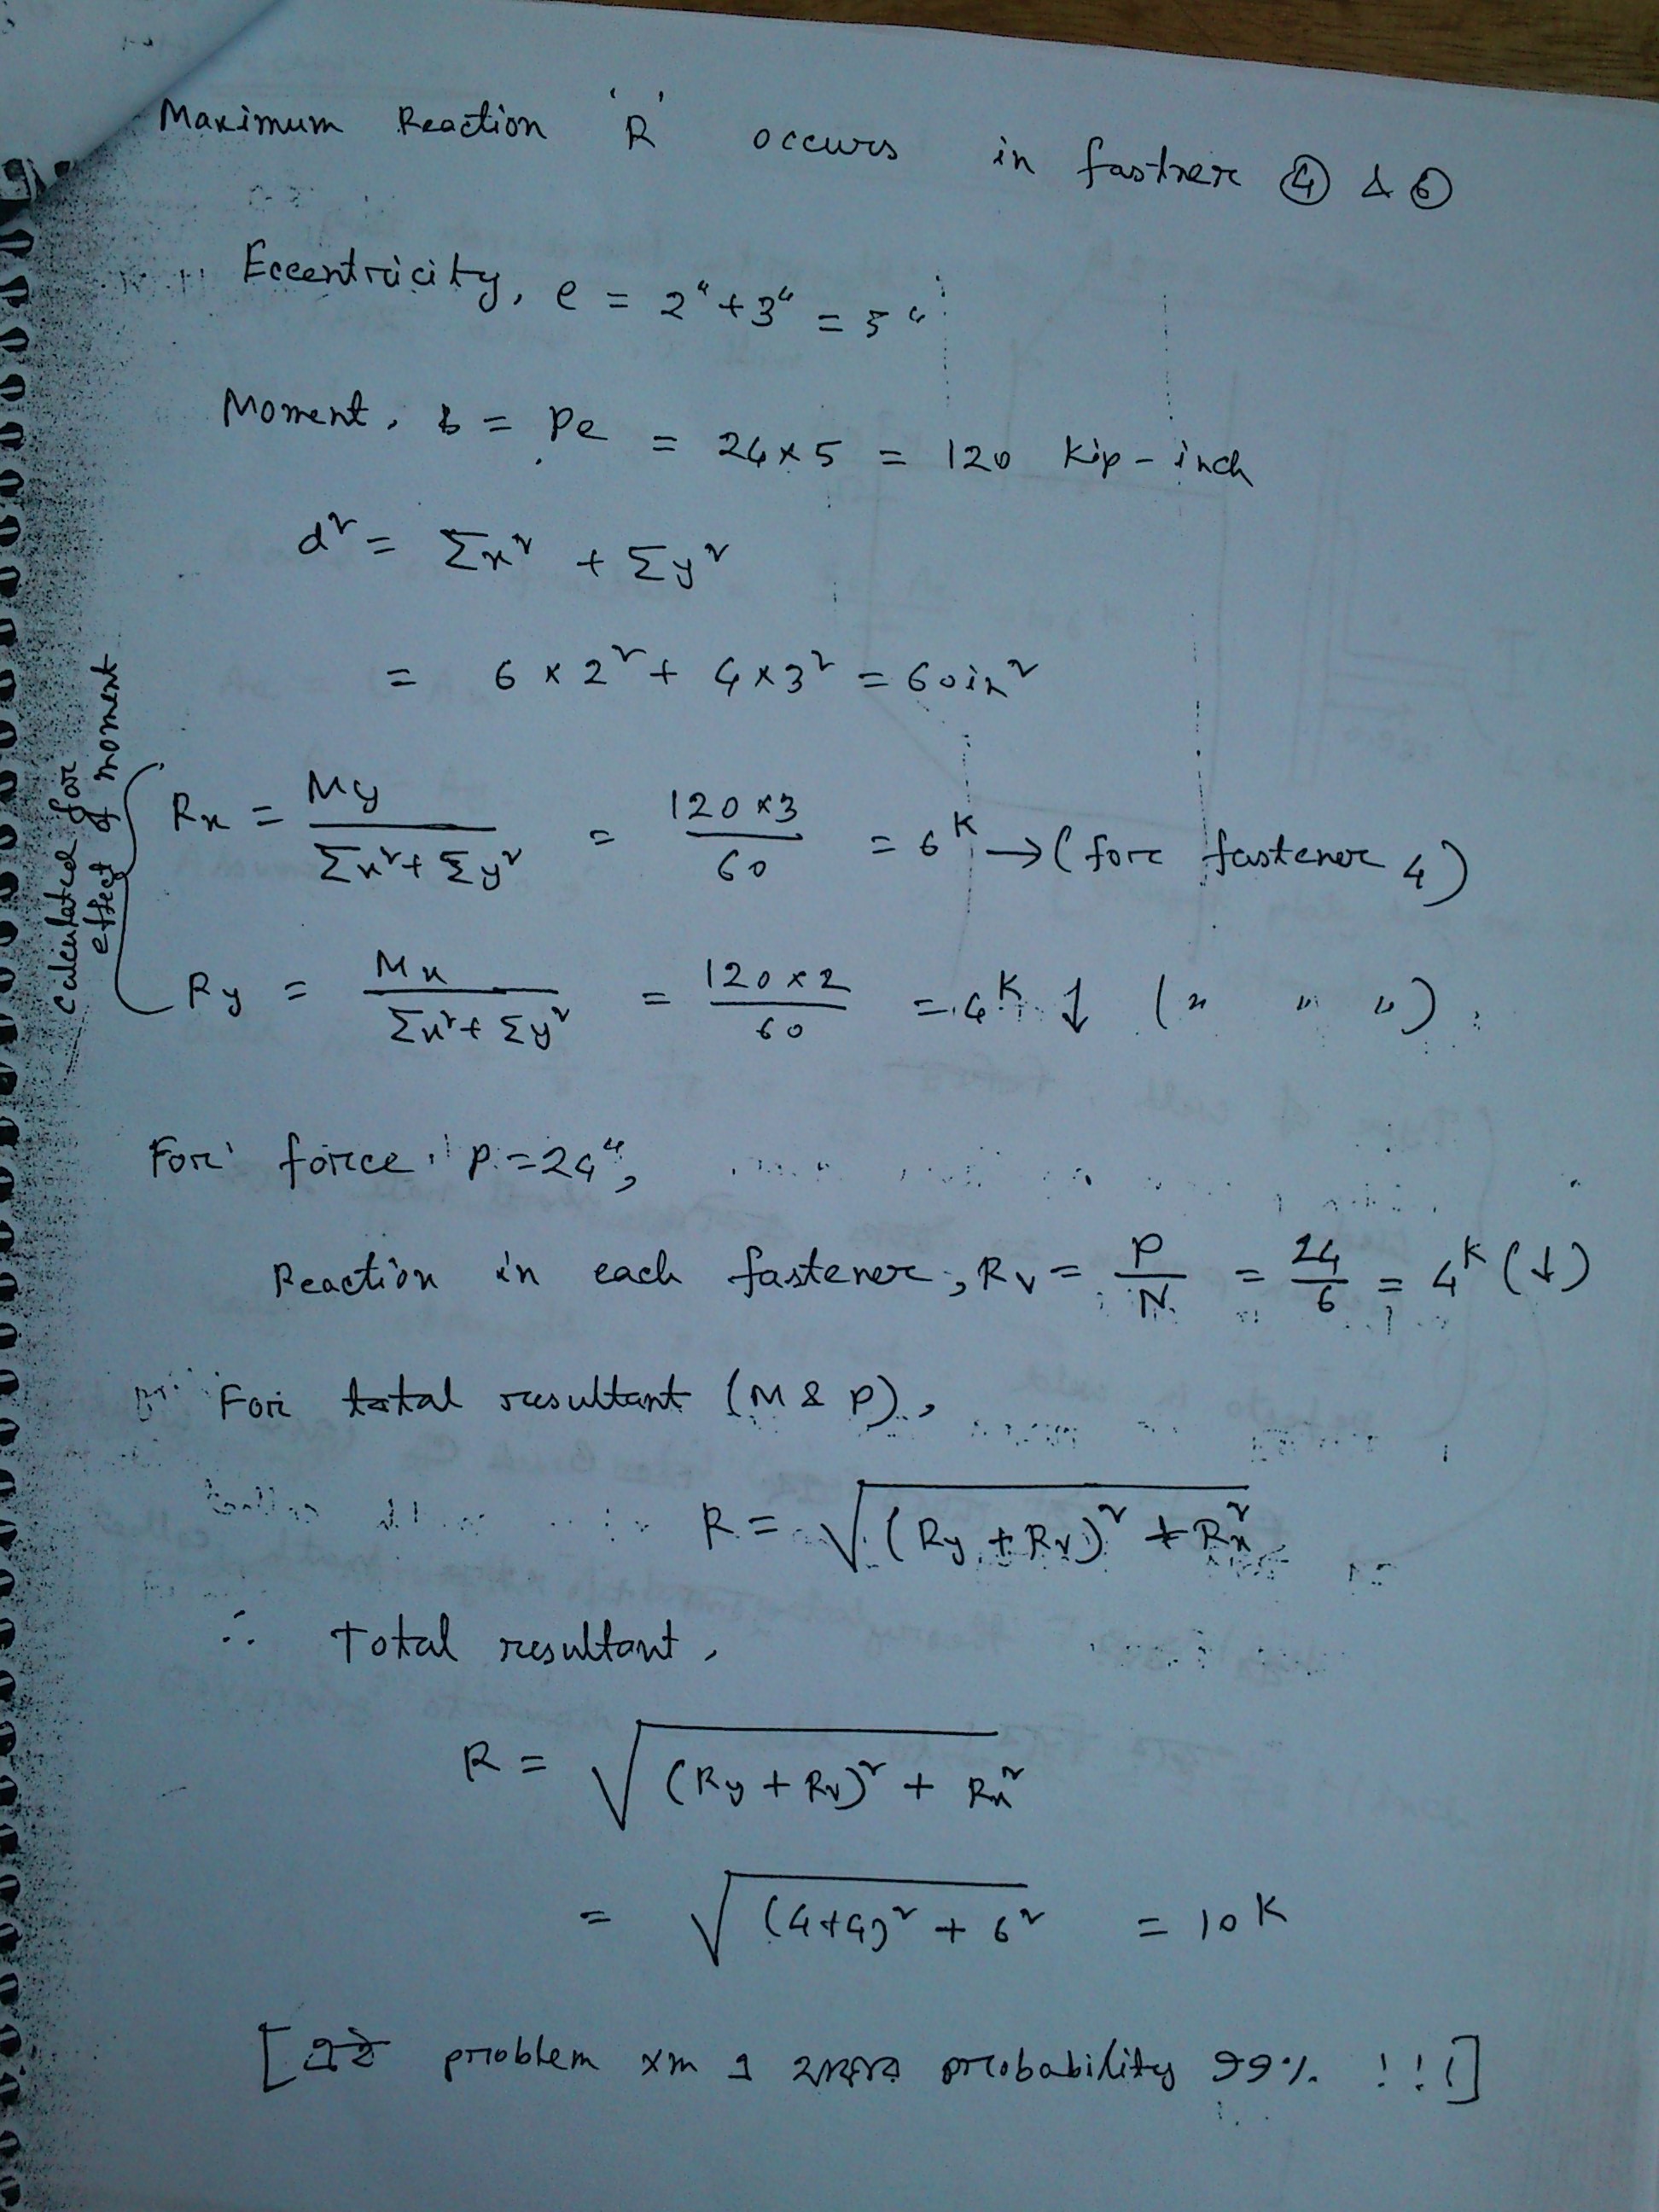 Maximum Reaction 'R' occurs in fastner ④ & ⑥
Eccentricity, e = 2" + 3" = 5"
Moment, = Pe = 24 × 5 = 120 Kip - inch
d² = Σx² + Σy²
= 6 × 2² + 4 × 3² = 60 in²
Calculated for effect of moment
Rx = My / (Σx² + Σy²) = (120 × 3) / 60 = 6ᴷ → (for fastener 4)
Ry = Mx / (Σx² + Σy²) = (120 × 2) / 60 = 4ᴷ ↓ (" " ")
For force P = 24",
Reaction in each fastener, Rv = P / N = 24 / 6 = 4ᴷ (↓)
For total resultant (M & P),
R = √((Ry + Rv)² + Rx²)
∴ Total resultant,
R = √((Ry + Rv)² + Rx²)
= √((4+4)² + 6²) = 10 K
[এই problem xm এ probability 99% !!!]